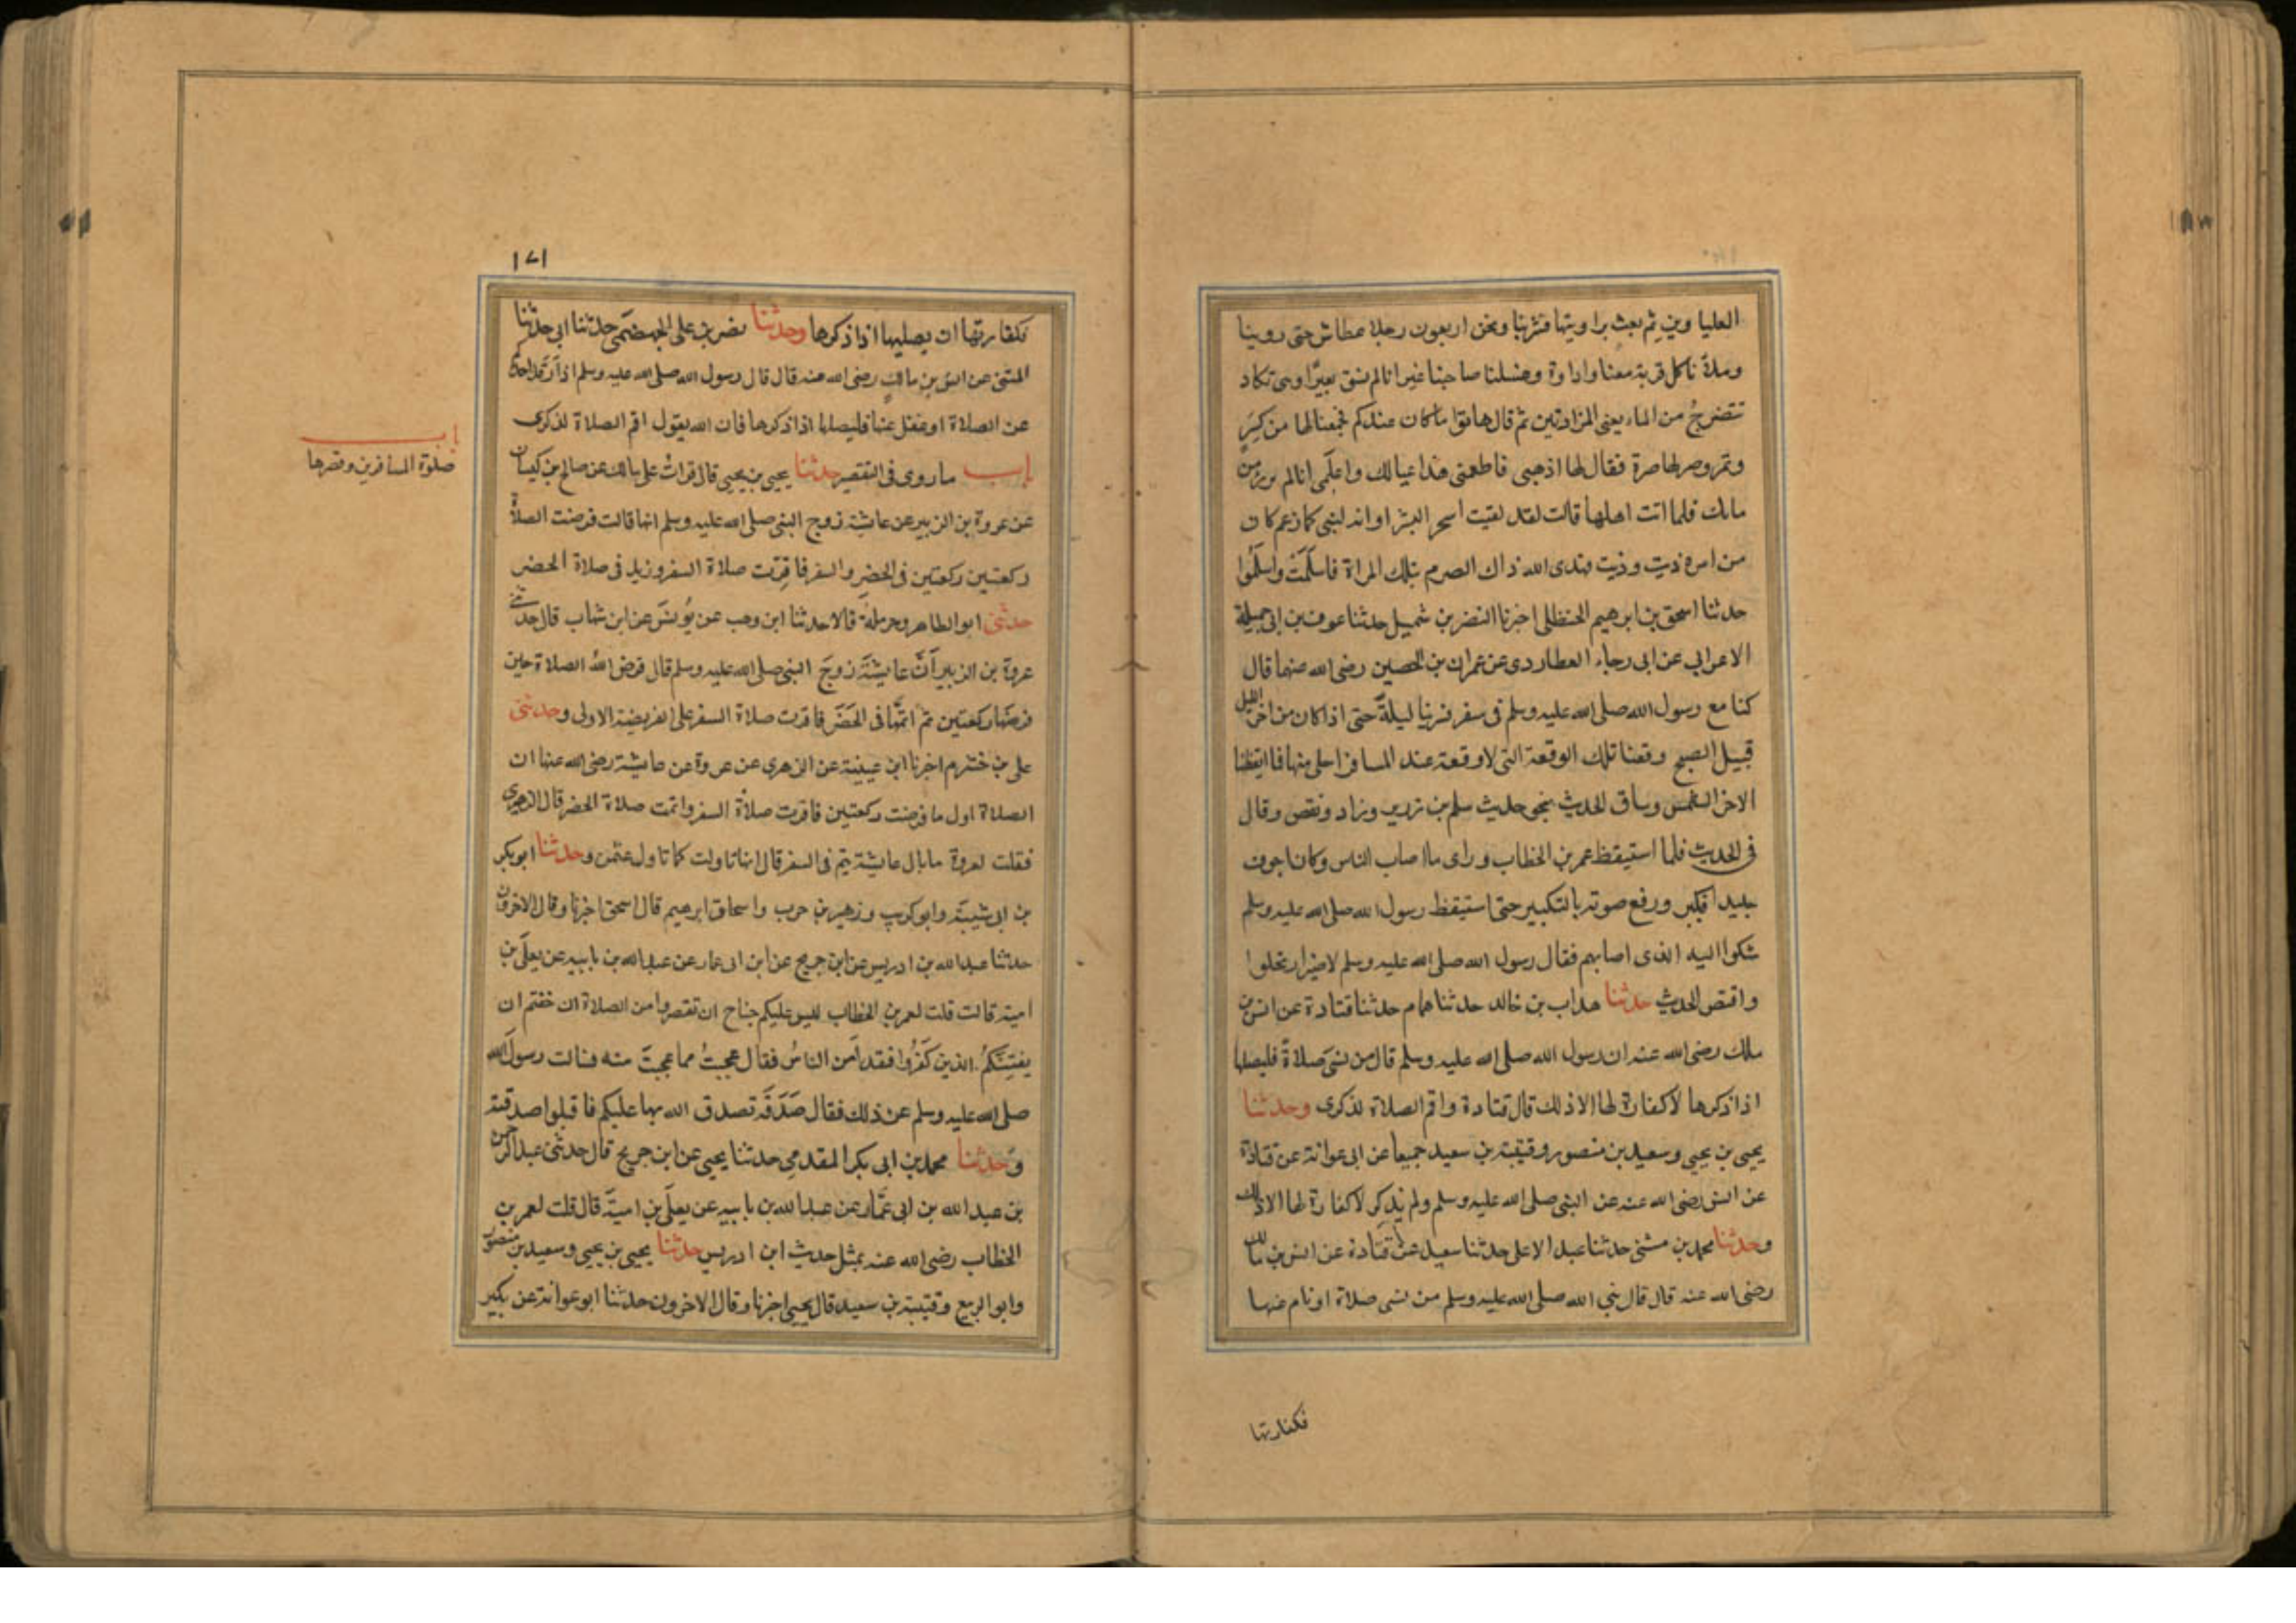 العلياوين ثم بعث براويتها فشربنا ونحن اربعون رجلا عطاش حتى روينا
وملأنا كل قربة معنا واداوة وغسلنا صاحبنا غير انا لم نسق بعيرًا وهى تكاد
تنضرج من الماء يعنى المزادتين ثم قال هاتوا ما كان عندكم فجمعنا لها من كِسَرٍ
وتمر وصر لها صرة فقال لها اذهبى فاطعمى هذا عيالك واعلَمى انا لم نرزء من
مائك فلما اتت اهلها قالت لقد لقيت اسحر البشر او انه لنبى كما زعم كان
من امره ذيت وذيت فهدى الله ذاك الصرم بتلك المراة فاسلَمَتْ واسلَمُوا
حدثنا اسحق بن ابرهيم الحنظلى اخبرنا النضر بن شميل حدثنا عوف بن ابى جميلة
الاعرابي عن ابى رجاء العطاردى عن عمران بن الحصين رضى الله عنهما قال
كنا مع رسول الله صلى الله عليه وسلم فى سفر فسرينا ليلةً حتى اذا كان من اخر الليل
قبيل الصبح وقعنا تلك الوقعة التى لا وقعة عند المسافر احلى منها فما ايقظنا
الاحر الشمس وساق الحديث بنحو حديث سلم بن زرير وزاد ونقص وقال
فى الحديث فلما استيقظ عمر بن الخطاب وراى ما اصاب الناس وكان اجوف
جليدا فكبر ورفع صوته بالتكبير حتى استيقظ رسول الله صلى الله عليه وسلم
شكوا اليه الذى اصابهم فقال رسول الله صلى الله عليه وسلم لاضير ارتحلوا
واقتص الحديث حدثنا هداب بن خالد حدثنا همام حدثنا قتادة عن انس بن
ملك رضى الله عنه ان رسول الله صلى الله عليه وسلم قال من نسَى صلاةً فليصلها
اذا ذكرها لا كفارة لها الا ذلك قال قتادة واقم الصلاة لذكرى وحدثنا
يحيى بن يحيى وسعيد بن منصور وقتيبة بن سعيد جميعا عن ابى عوانة عن قتادة
عن انس رضى الله عنه عن النبى صلى الله عليه وسلم ولم يذكر لا كفارة لها الا ذلك
وحدثنا محمد بن مثنى حدثنا عبد الاعلى حدثنا سعيد عن قتادة عن انس بن مالك
رضى الله عنه قال قال نبي الله صلى الله عليه وسلم من نسى صلاة او نام عنها
فكفارتها
١٧١
فكفارتها ان يصليها اذا ذكرها وحدثنا نصر بن على الجهضمى حدثنا ابى حدثنا
المثنى عن انس بن مالكٍ رضى الله عنه قال قال رسول الله صلى الله عليه وسلم اذا رَقَد احدكم
عن الصلاة او غفل عنها فليصلها اذا ذكرها فان الله يقول اقم الصلاة لذكرى
باب ما روى فى التقصير حدثنا يحيى بن يحيى قال قراتُ على مالك عن صالح بن كيسان
عن عروة بن الزبير عن عايشة زوج النبى صلى الله عليه وسلم انها قالت فرضت الصلاة
ركعتين ركعتين فى الحضر والسفر فاقِرّت صلاة السفر وزيد فى صلاة الحضر
حدثنى ابو الطاهر وحرملة قالا حدثنا ابن وهب عن يُونسَ عن ابن شهاب قال حدثنى
عروة بن الزبير اَنَّ عايشَةَ زوجَ النبى صلى الله عليه وسلم قال فرض اللهُ الصلاة حين
فرضها ركعتين ثم اتمَّها فى الحَضَر فاقرت صلاة السفر على الفريضة الاولى وحدثنى
على بن خشرم اخبرنا ابن عيينة عن الزهرى عن عروة عن عايشة رضى الله عنها ان
الصلاة اول ما فرضت ركعتين فاقرت صلاة السفر واتمت صلاة الحضر قال الزهرى
فقلت لعروة ما بال عايشة يتم فى السفر قال انها تاولت كما تاول عثمن وحدثنا ابو بكر
بن ابى شيبَة وابو كريب وزهير بن حرب واسحاق ابرهيم قال اسحق اخبرنا وقال الاخرون
حدثنا عبد الله بن ادريس عن ابن جريج عن ابن ابى عمار عن عبد الله بن بابيه عن يعلَى بن
امية قالت قلت لعمر بن الخطاب ليس عليكم جناح ان تقصروا من الصلاة ان خفتم ان
يفتِنَكُمُ الذين كَفَرُوا فقد اَمن الناسُ فقال عجبتُ مما عجبتَ منه فسالت رسولَ الله
صلى الله عليه وسلم عن ذلك فقال صَدَقَة تصدق الله بها عليكم فاقبلوا صدقته
وحدثنا محمد بن ابى بكر المقدمي حدثنا يحيى عن ابن جريج قال حدثنى عبد الرحمن
بن عبد الله بن ابى عمَّار عن عبد الله بن بابيه عن يعلَى بن اميةَ قال قلت لعمر بن
الخطاب رضى الله عنه بمثل حديث ابن ادريس حدثنا يحيى بن يحيى وسعيد بن منصور
وابو الربيع وقتيبة بن سعيد قال يحيى اخبرنا وقال الاخرون حدثنا ابو عوانة عن بكير
باب
صلوة المسافرين وقصرها